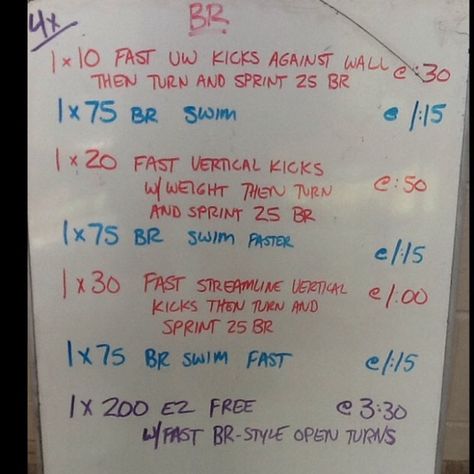 4x
BR
1x10 FAST UW KICKS AGAINST WALL @ :30
THEN TURN AND SPRINT 25 BR
1x75 BR SWIM @ 1:15
1x20 FAST VERTICAL KICKS
W/WEIGHT THEN TURN @ :50
AND SPRINT 25 BR
1x75 BR SWIM FASTER
@ 1:15
1x30 FAST STREAMLINE VERTICAL @ 1:00
KICKS THEN TURN AND
SPRINT 25 BR
1x75 BR SWIM FAST @ 1:15
1x200 EZ FREE @ 3:30
W/FAST BR-STYLE OPEN TURNS